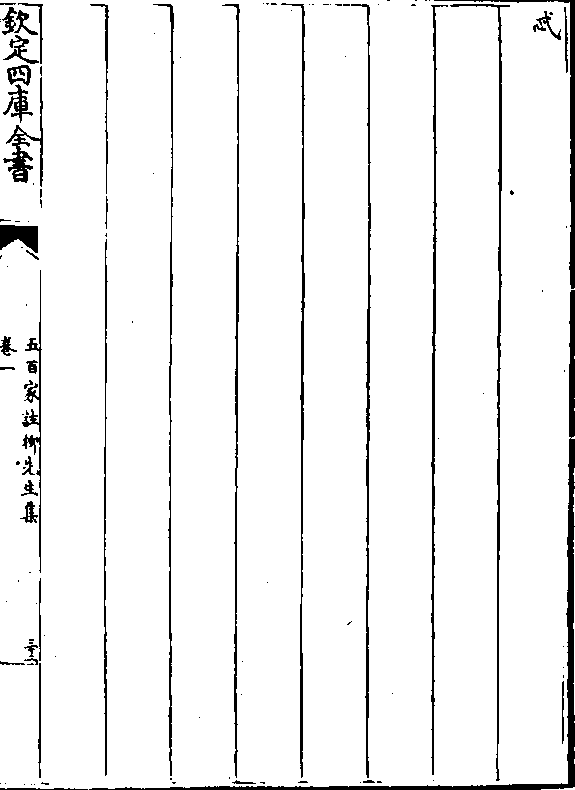 弐
欽定四庫全書
五百家註柳先生集
卷一
三十二